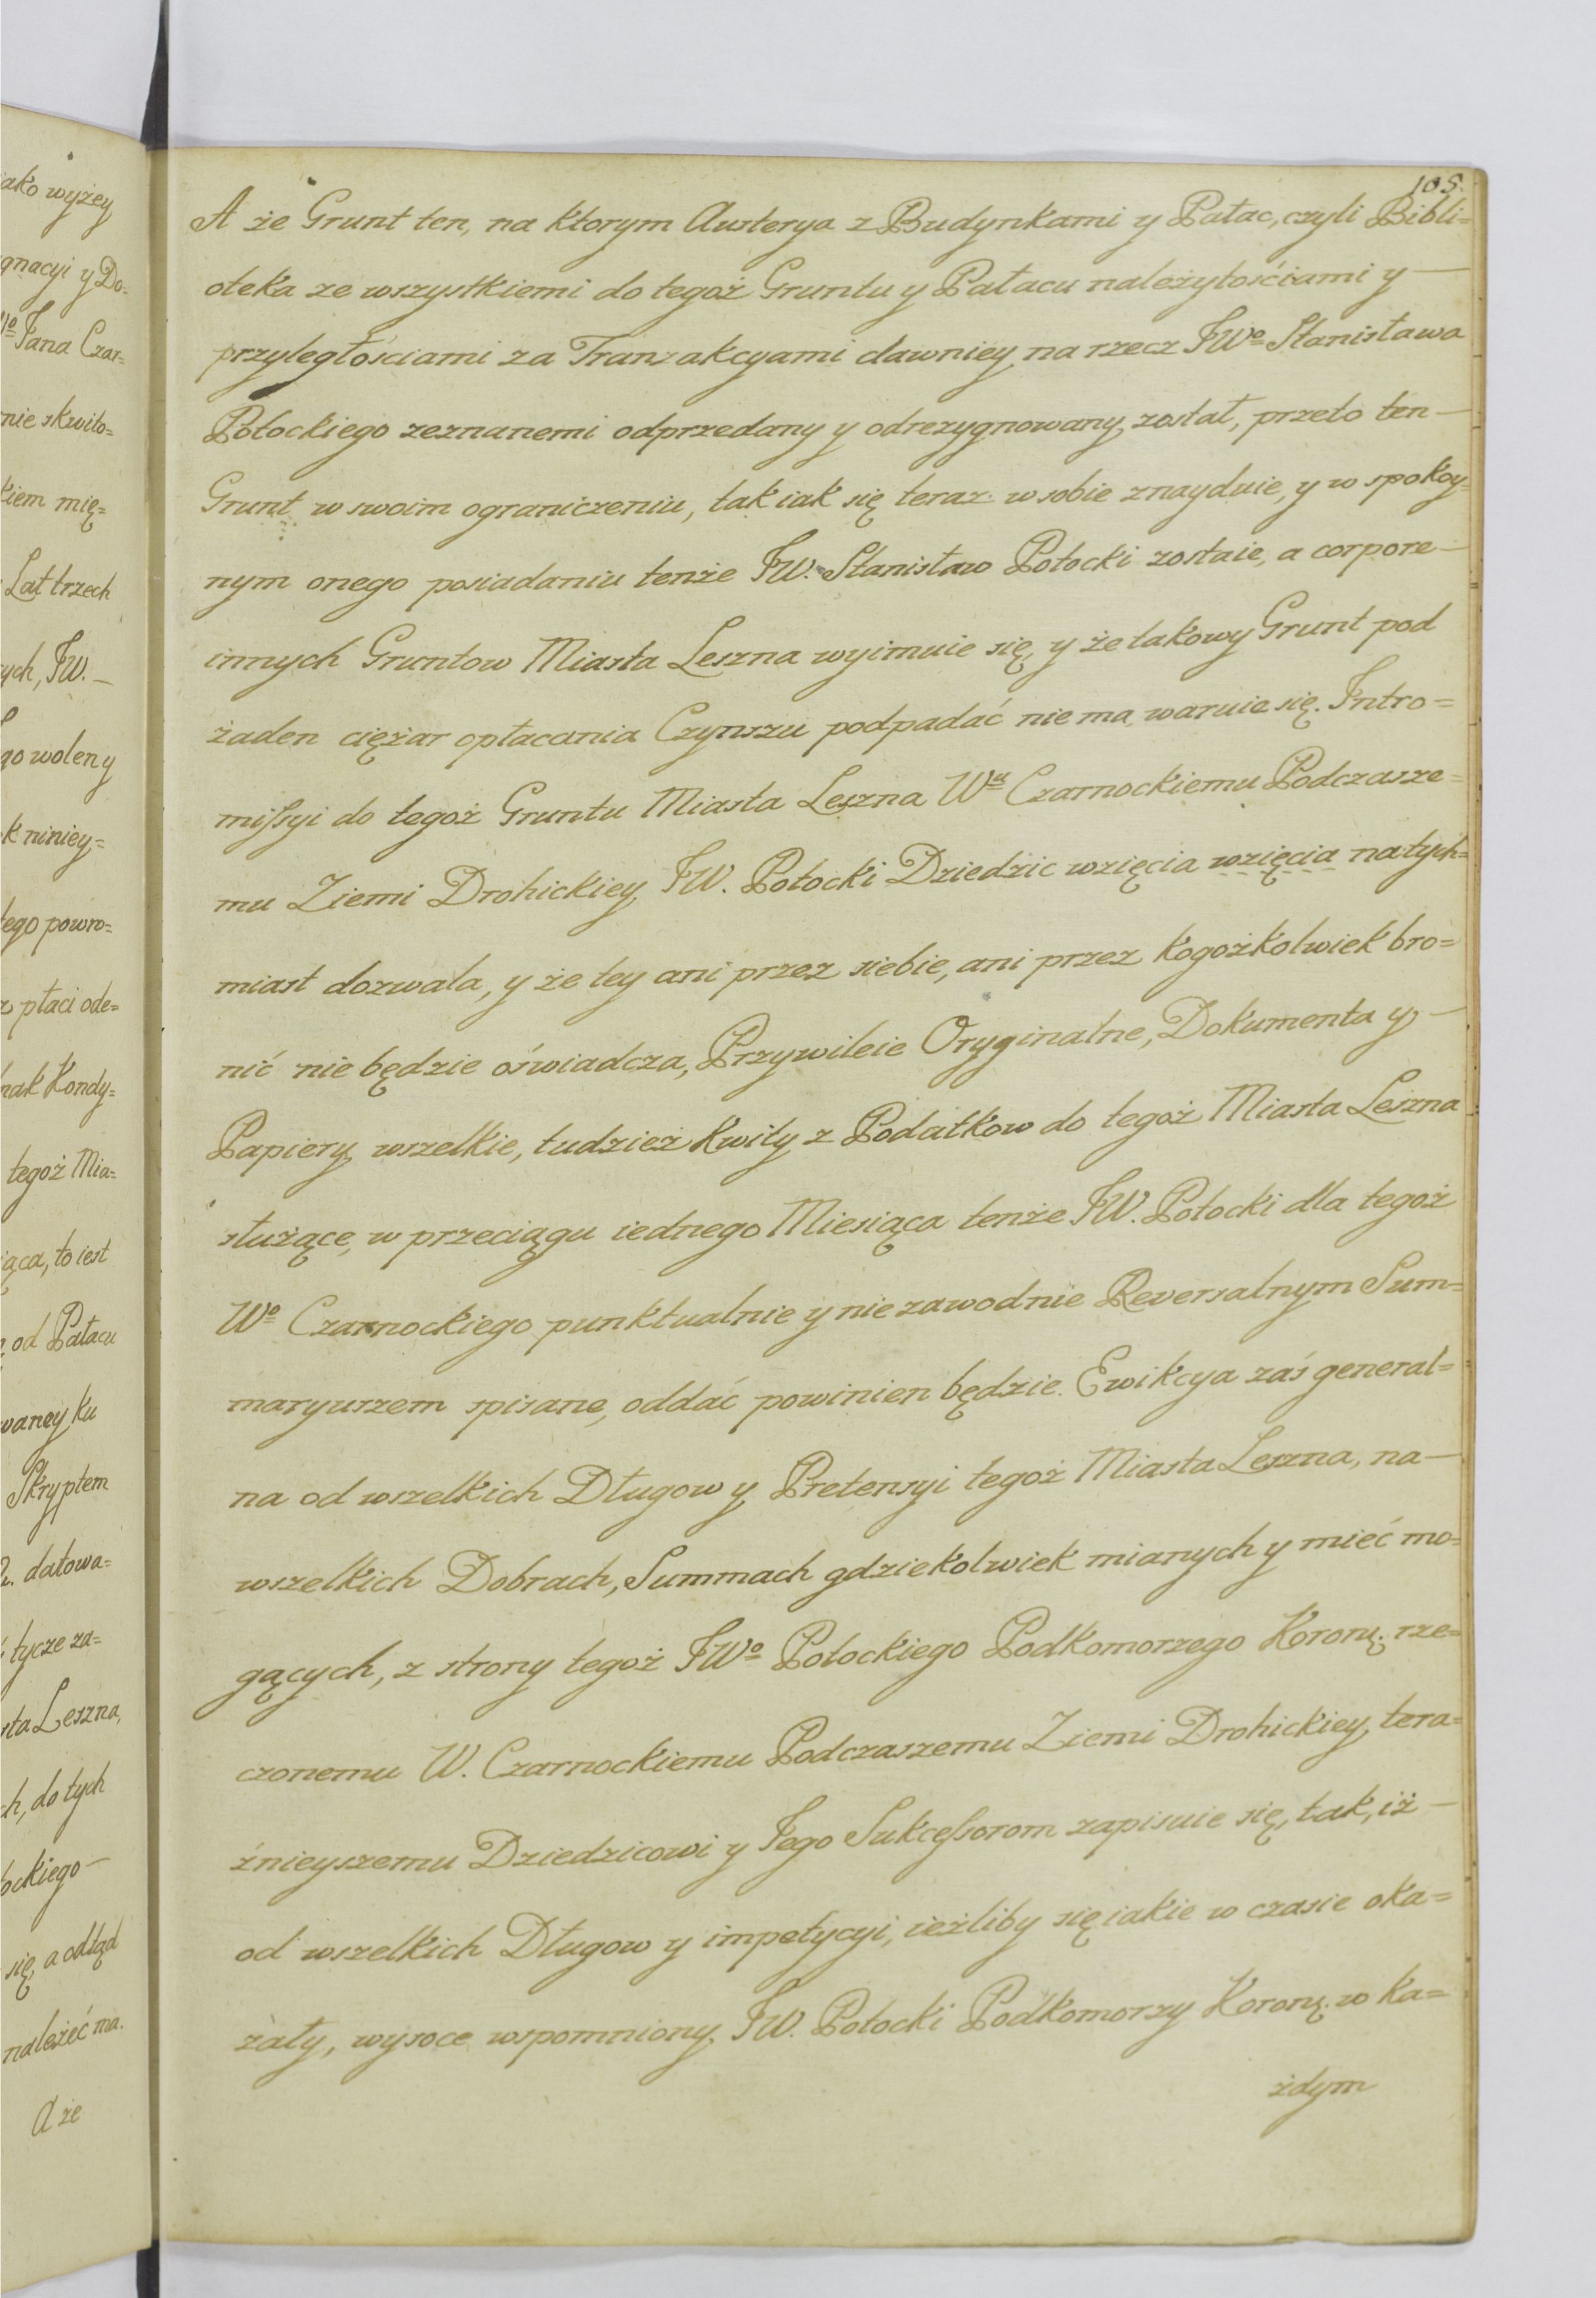 105.
A że Grunt ten, na ktorym Austerya z Budynkami y Pałac, czyli Bibli=
oteka ze wszystkiemi do tegoż Gruntu y Pałacu należytościami y —
przyległościami za Tranzakcyami dawniey na rzecz JWo Stanisława
Potockiego zeznanemi odprzedany y odrezygnowany został, przeto ten —
Grunt w swoim ograniczeniu, tak iak się teraz w sobie znayduie, y w spokoy=
nym onego posiadaniu tenże JW. Stanisław Potocki zostaie, a corpore —
innych Gruntow Miasta Leszna wyimuie się, y że takowy Grunt pod
żaden ciężar opłacania Czynszu podpadać nie ma, waruie się. Intro=
missyi do tegoż Gruntu Miasta Leszna Wu Czarnockiemu Podczasze=
mu Ziemi Drohickiey, JW. Potocki Dziedzic wzięcia wzięcia natych=
miast dozwala, y że tey ani przez siebie, ani przez kogożkolwiek bro=
nić nie będzie oświadcza, Przywileie Oryginalne, Dokumenta y —
Papiery wszelkie, tudzież Kwity z Podatkow do tegoż Miasta Leszna
służące, w przeciągu iednego Miesiąca tenże JW. Potocki dla tegoż
Wo Czarnockiego punktualnie y niezawodnie Reversalnym Sum=
maryuszem spisane, oddać powinien będzie. Ewikcya zaś general=
na od wszelkich Długow y Pretensyi tegoż Miasta Leszna, na —
wszelkich Dobrach, Summach gdziekolwiek mianych y mieć mo=
gących, z strony tegoż JWo Potockiego Podkomorzego Koronn: rze=
czonemu W. Czarnockiemu Podczaszemu Ziemi Drohickiey, tera=
źnieyszemu Dziedzicowi y Jego Sukcessorom zapisuie się, tak, iż —
od wszelkich Długow y impetycyi, ieżliby się iakie w czasie oka=
zały, wysoce wspomniony JW. Potocki Podkomorzy Koronn. w ka=
żdym